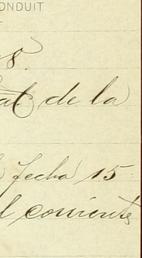 ONDUIT
8.
de la
fecha 15
l corriente